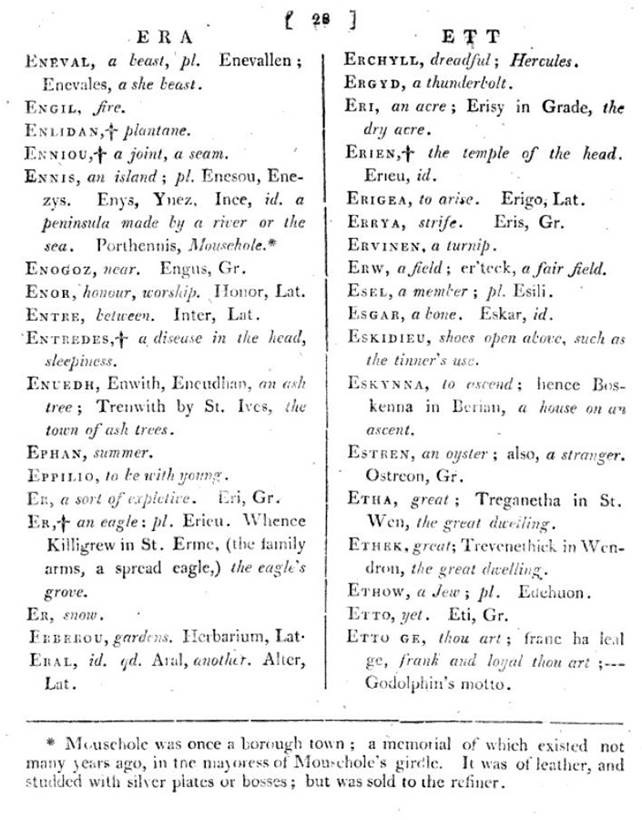 [ 28 ]
ERA
ENEVAL, a beast, pl. Enevallen ;
Enevales, a she beast.
ENGIL, fire.
ENLIDAN,† plantane.
ENNIOU,† a joint, a seam.
ENNIS, an island ; pl. Enesou, Ene-
zys. Enys, Ynez, Ince, id. a
peninsula made by a river or the
sea. Porthennis, Mousehole.*
ENOGOZ, near. Engus, Gr.
ENOR, honour, worship. Honor, Lat.
ENTRE, between. Inter, Lat.
ENTREDES,† a disease in the head,
sleepiness.
ENUEDH, Enwith, Encudhan, an ash
tree ; Trenwith by St. Ives, the
town of ash trees.
EPHAN, summer.
EPPILIO, to be with young.
ER, a sort of expletive. Eri, Gr.
ER,† an eagle : pl. Erieu. Whence
Killigrew in St. Erme, (the family
arms, a spread eagle,) the eagle's
grove.
ER, snow.
ERBEROU, gardens. Herbarium, Lat.
ERAL, id. qd. Aral, another. Alter,
Lat.
ETT
ERCHYLL, dreadful ; Hercules.
ERGYD, a thunderbolt.
ERI, an acre ; Erisy in Grade, the
dry acre.
ERIEN,† the temple of the head.
Erieu, id.
ERIGEA, to arise. Erigo, Lat.
ERRYA, strife. Eris, Gr.
ERVINEN, a turnip.
ERW, a field ; er'teck, a fair field.
ESEL, a member ; pl. Esili.
ESGAR, a bone. Eskar, id.
ESKIDIEU, shoes open above, such as
the tinner's use.
ESKYNNA, to ascend ; hence Bos-
kenna in Berian, a house on an
ascent.
ESTREN, an oyster ; also, a stranger.
Ostreon, Gr.
ETHA, great ; Treganetha in St.
Wen, the great dwelling.
ETHEK, great; Trevenethick in Wen-
dron, the great dwelling.
ETHOW, a Jew ; pl. Edehuon.
ETTO, yet. Eti, Gr.
ETTO GE, thou art ; franc ha leal
ge, frank and loyal thou art ;---
Godolphin's motto.
* Mousehole was once a borough town ; a memorial of which existed not
many years ago, in the mayoress of Mousehole's girdle. It was of leather, and
studded with silver plates or bosses ; but was sold to the refiner.